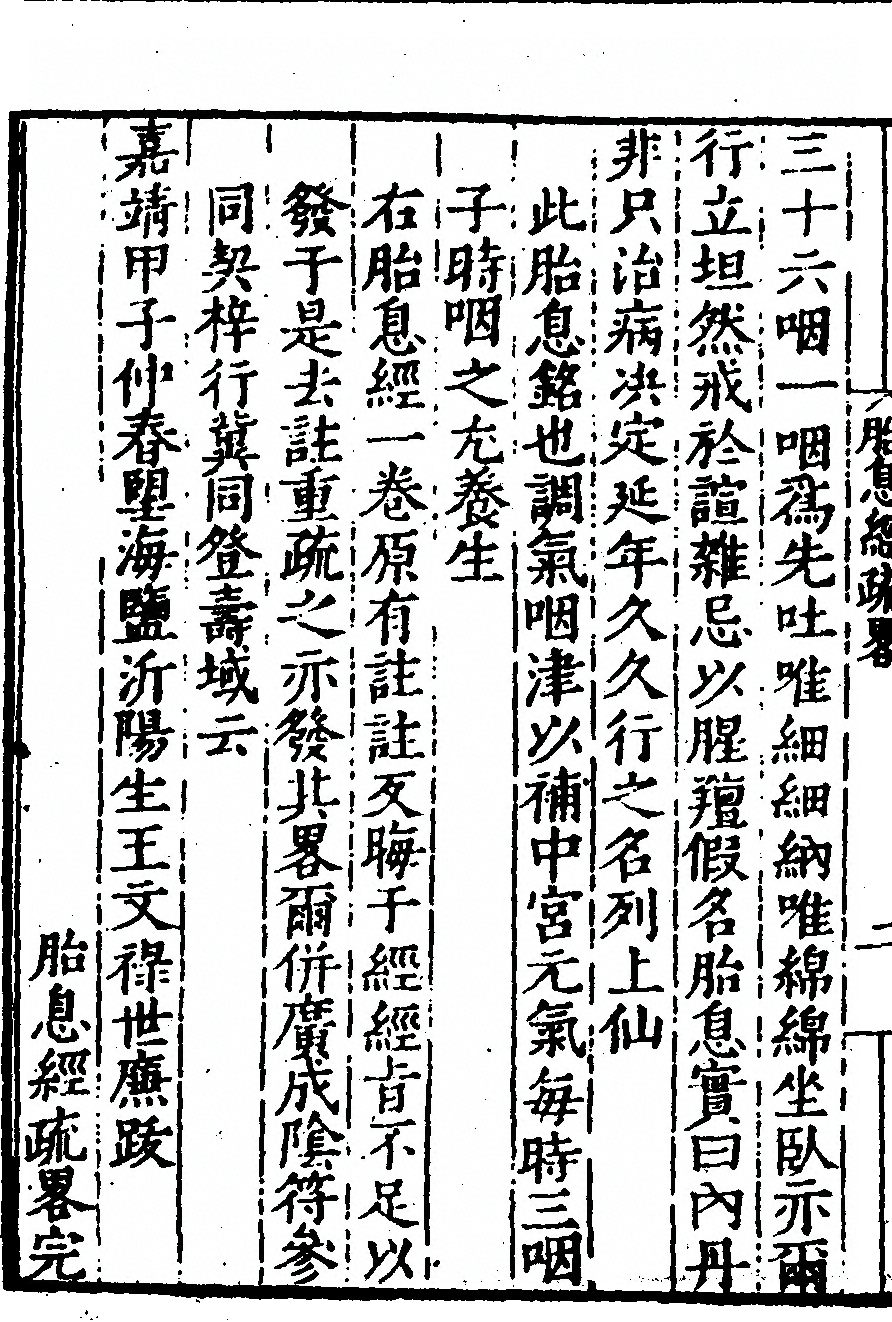 胎息經疏畧
二
三十六咽一咽爲先吐唯細細納唯綿綿坐臥亦爾
行立坦然戒於諠雜忌以腥羶假名胎息實曰內丹
非只治病决定延年久久行之名列上仙
此胎息銘也調氣咽津以補中宮元氣每時三咽
子時咽之尤養生
右胎息經一卷原有註註反晦于經經旨不足以
發于是去註重疏之亦發其畧爾併廣成陰符參
同契梓行冀同登壽域云
嘉靖甲子仲春曌海鹽沂陽生王文祿世廉跋
胎息經疏畧完